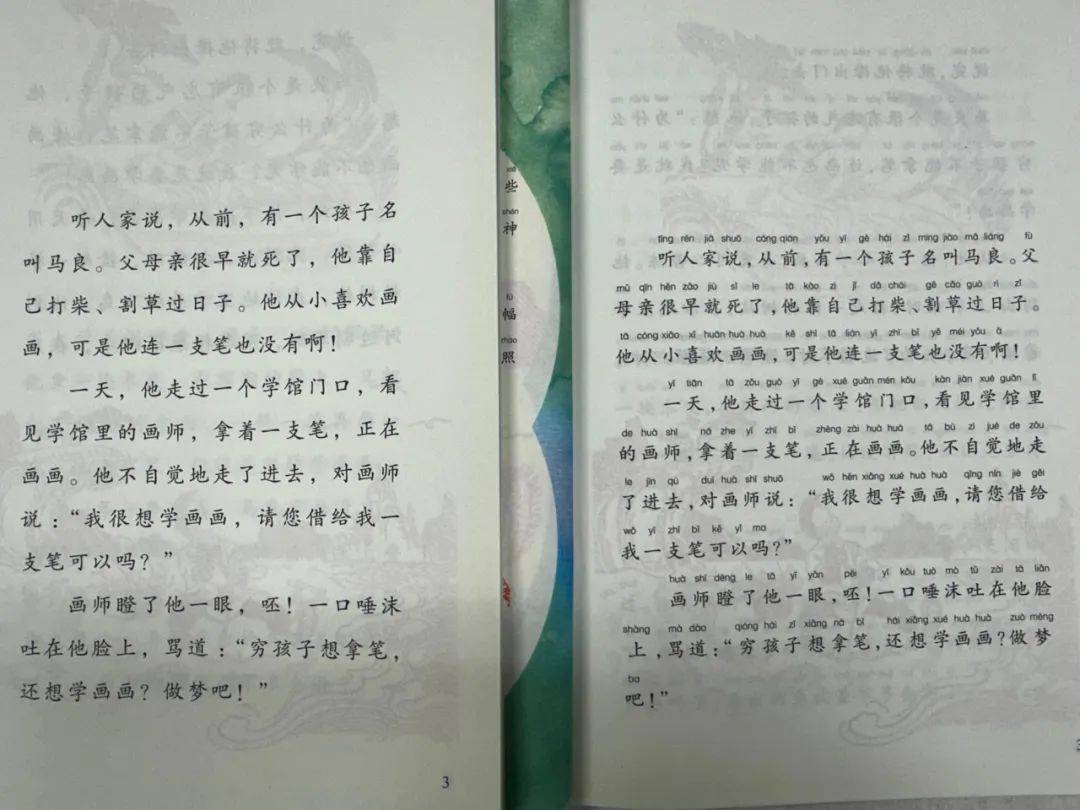 听人家说，从前，有一个孩子名
叫马良。父母亲很早就死了，他靠自
己打柴、割草过日子。他从小喜欢画
画，可是他连一支笔也没有啊！
一天，他走过一个学馆门口，看
见学馆里的画师，拿着一支笔，正在
画画。他不自觉地走了进去，对画师
说：“我很想学画画，请您借给我一
支笔可以吗？”
画师瞪了他一眼，呸！一口唾沫
吐在他脸上，骂道：“穷孩子想拿笔，
还想学画画？做梦吧！”
3
些
shén
神
fú
幅
zhào
照
tīng rén jiā shuō cóng qián yǒu yī gè hái zǐ míng jiào mǎ liáng fù
听人家说，从前，有一个孩子名叫马良。父
mǔ qīn hěn zǎo jiù sǐ le tā kào zì jǐ dǎ chái gē cǎo guò rì zǐ
母亲很早就死了，他靠自己打柴、割草过日子。
tā cóng xiǎo xǐ huān huà huà kě shì tā lián yī zhī bǐ yě méi yǒu a
他从小喜欢画画，可是他连一支笔也没有啊！
yī tiān tā zǒu guò yī gè xué guǎn mén kǒu kàn jiàn xué guǎn lǐ
一天，他走过一个学馆门口，看见学馆里
de huà shī ná zhe yī zhī bǐ zhèng zài huà huà tā bù zì jué de zǒu
的画师，拿着一支笔，正在画画。他不自觉地走
le jìn qù duì huà shī shuō wǒ hěn xiǎng xué huà huà qǐng nín jiè gěi
了进去，对画师说：“我很想学画画，请您借给
wǒ yī zhī bǐ kě yǐ ma
我一支笔可以吗？”
huà shī dèng le tā yī yǎn pēi yī kǒu tuò mò tǔ zài tā liǎn
画师瞪了他一眼，呸！一口唾沫吐在他脸
shàng mà dào qióng hái zǐ xiǎng ná bǐ hái xiǎng xué huà huà zuò mèng
上，骂道：“穷孩子想拿笔，还想学画画？做梦
ba
吧！”